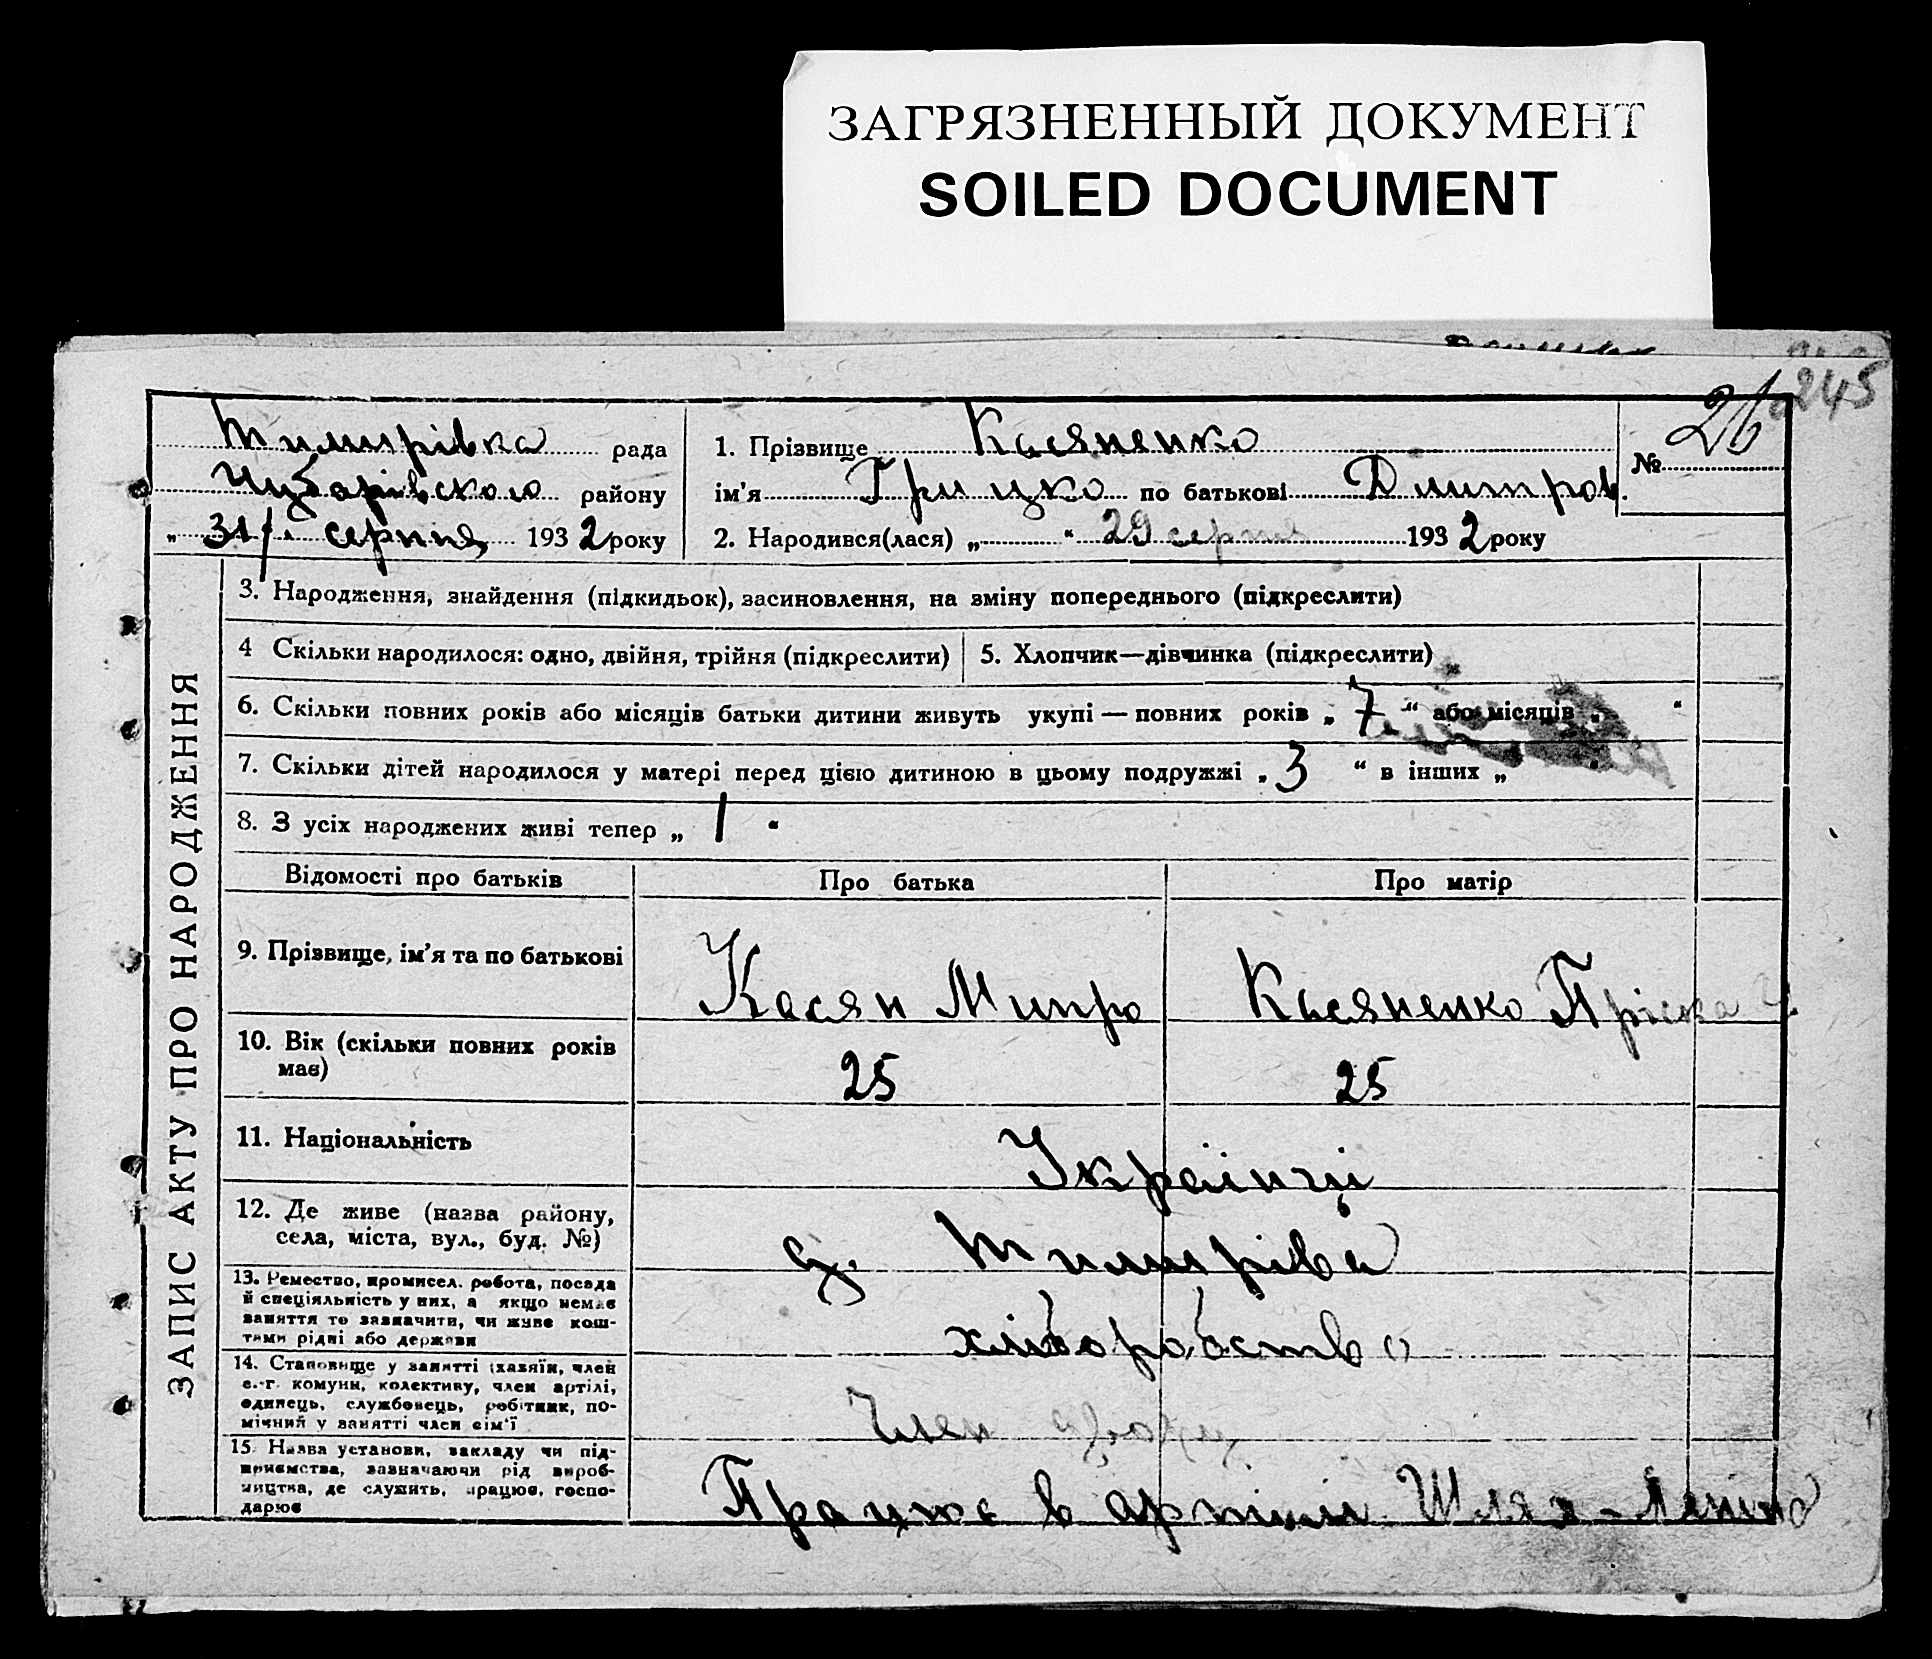 ЗАГРЯЗНЕННЫЙ ДОКУМЕНТ
SOILED DOCUMENT
245
26
Тимирівка рада
Чубарівского району
„ 31/. серпня 1932 року
1. Прізвище Касяненко
ім'я Грицко по батькові Дмитров.
№
2. Народився(лася) „ “ 29 серпня 1932 року
ЗАПИС АКТУ ПРО НАРОДЖЕННЯ
3. Народження, знайдення (підкидьок), засиновлення, на зміну попереднього (підкреслити)
4 Скільки народилося: одно, двійня, трійня (підкреслити)
5. Хлопчик—дівчинка (підкреслити)
6. Скільки повних років або місяців батьки дитини живуть укупі — повних років „ 7 “ або місяців „ “
7. Скільки дітей народилося у матері перед цією дитиною в цьому подружжі „ 3 “ в інших „ “
8. З усіх народжених живі тепер „ 1 “
Відомості про батьків
Про батька
Про матір
9. Прізвище, ім'я та по батькові
Касян
Касяненко Пріська
10. Вік (скільки повних років має)
25
25
11. Національність
Українці
12. Де живе (назва району,
села, міста, вул., буд. №)
с.
13. Ремество, промисел. робота, посада
й спеціяльність у них, а якщо немає
заняття то зазначити, чи живе кош-
тами рідні або держави
хліборобство
14. Становище у занятті (хазяїн, член
с.-г. комуни, колективу, член артілі,
одинець, службовець, робітник, по-
мічний у занятті член сім'ї
Член
15. Назва установи, закладу чи під-
приємства, зазначаючи рід вироб-
ництва, де служить, працює, госпо-
дарює
Працює в артіли Шлях-Леніна